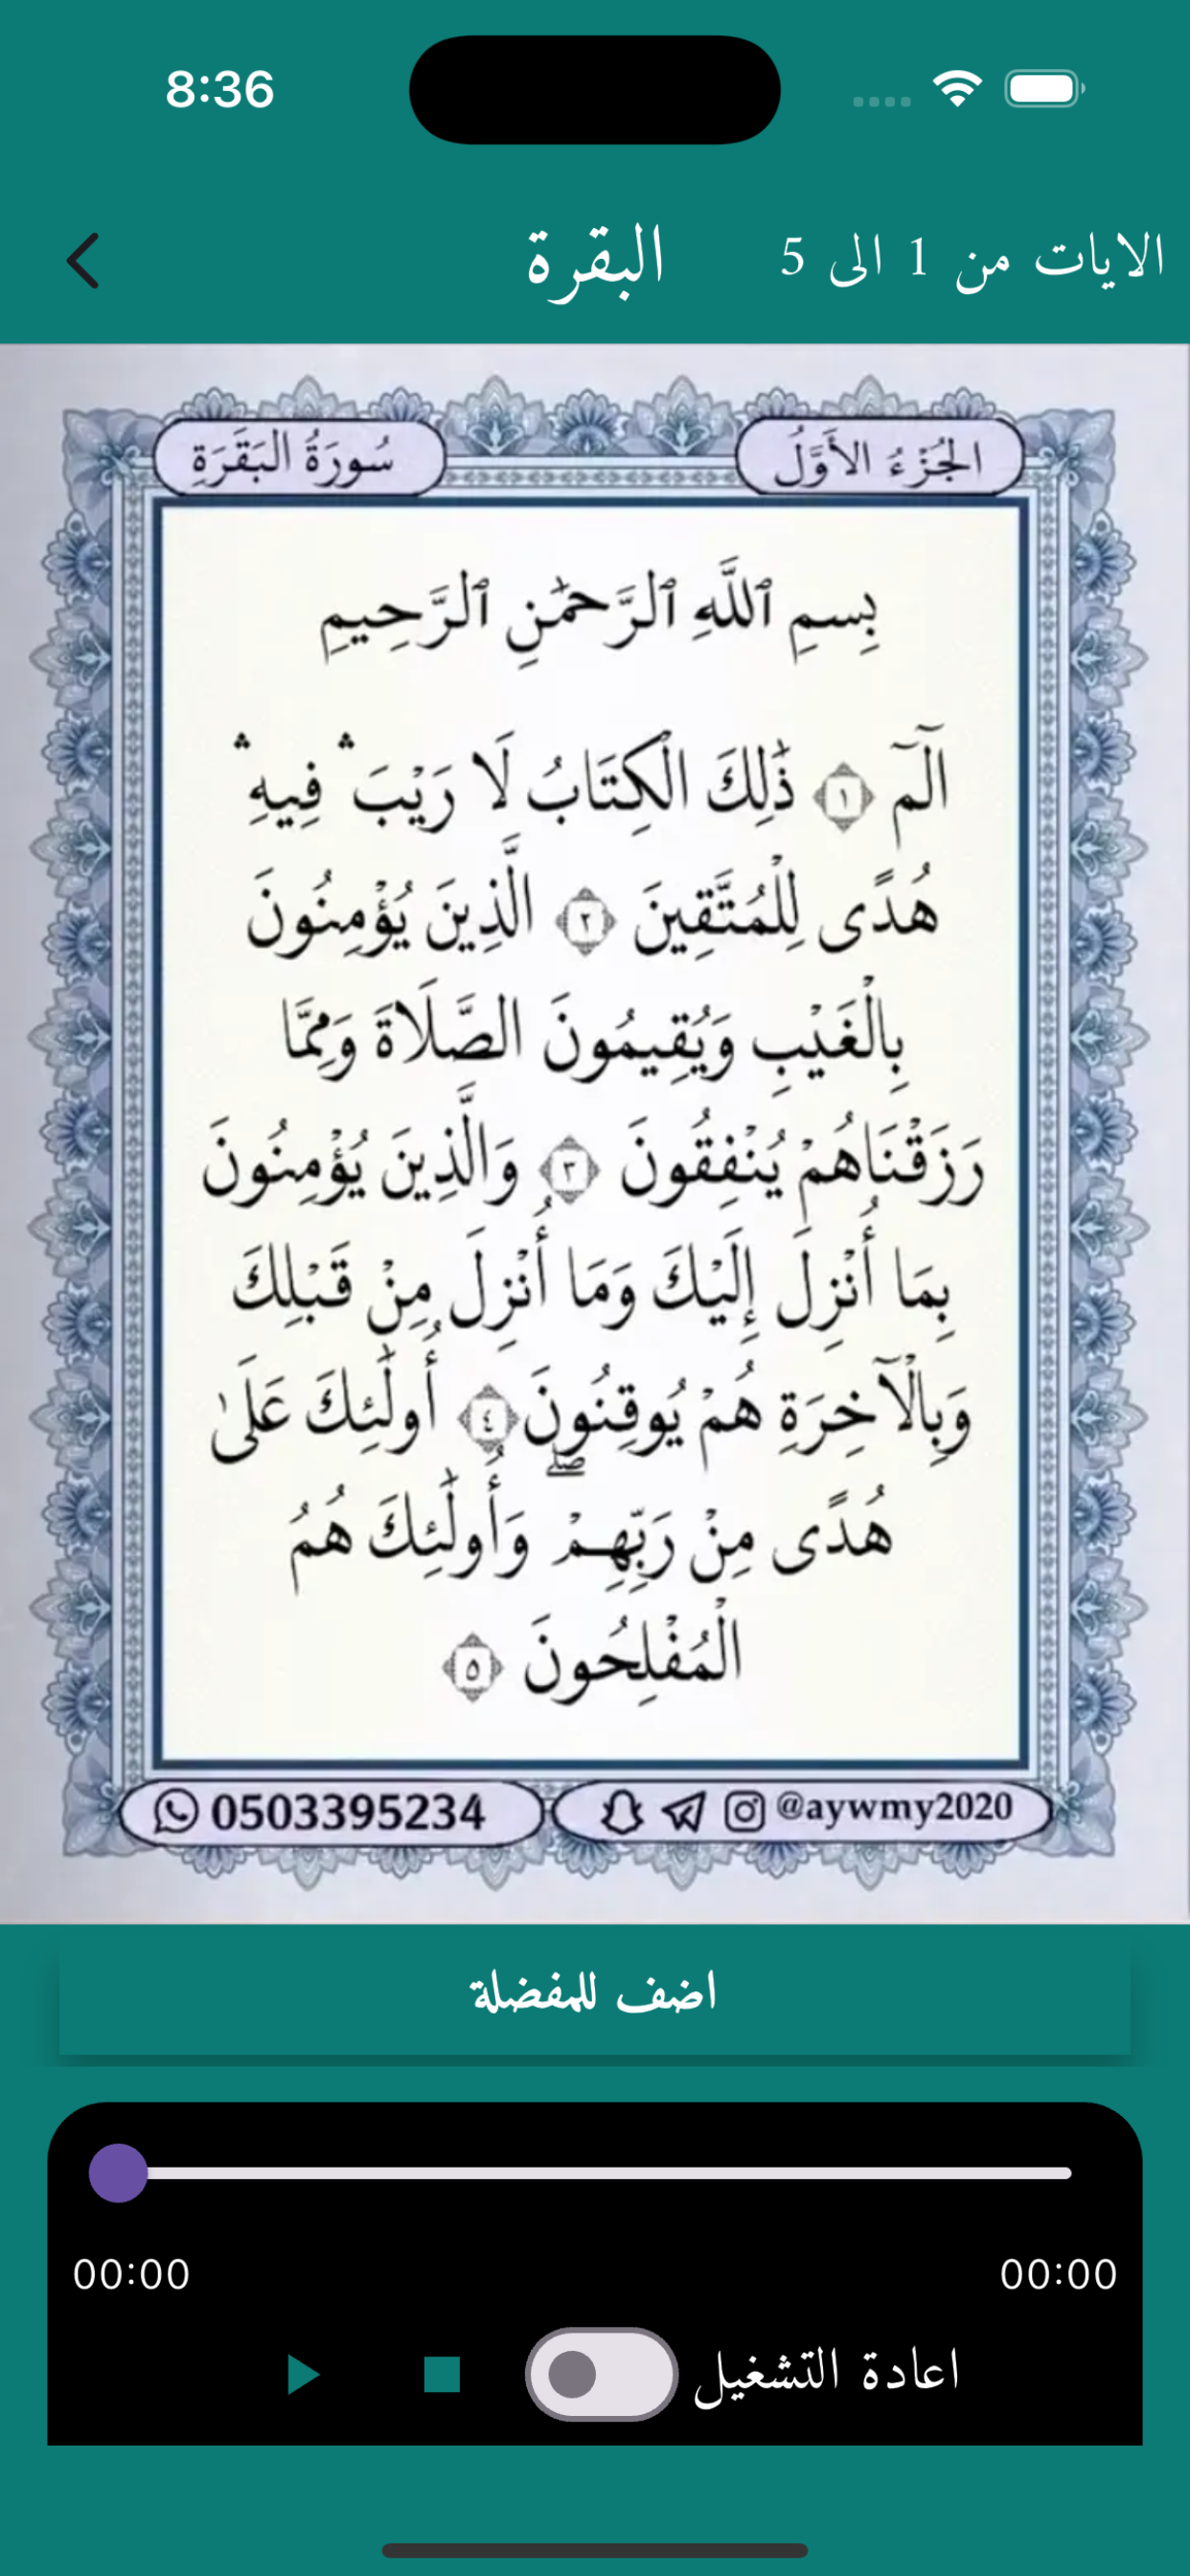 8:36
الايات من 1 الى 5
البقرة
الجُزْءُ الأَوَّلُ
سُورَةُ البَقَرَةِ
بِسمِ ٱللَّهِ ٱلرَّحمَٰنِ ٱلرَّحِيمِ
الٓمٓ ١ ذَٰلِكَ الْكِتَابُ لَا رَيْبَ ۛ فِيهِ ۛ
هُدًى لِلْمُتَّقِينَ ٢ الَّذِينَ يُؤْمِنُونَ
بِالْغَيْبِ وَيُقِيمُونَ الصَّلَاةَ وَمِمَّا
رَزَقْنَاهُمْ يُنْفِقُونَ ٣ وَالَّذِينَ يُؤْمِنُونَ
بِمَا أُنْزِلَ إِلَيْكَ وَمَا أُنْزِلَ مِنْ قَبْلِكَ
وَبِالْآخِرَةِ هُمْ يُوقِنُونَ ٤ أُولَٰئِكَ عَلَىٰ
هُدًى مِنْ رَبِّهِمْ ۖ وَأُولَٰئِكَ هُمُ
الْمُفْلِحُونَ ٥
0503395234
@aywmy2020
اضف للمفضلة
00:00
00:00
اعادة التشغيل